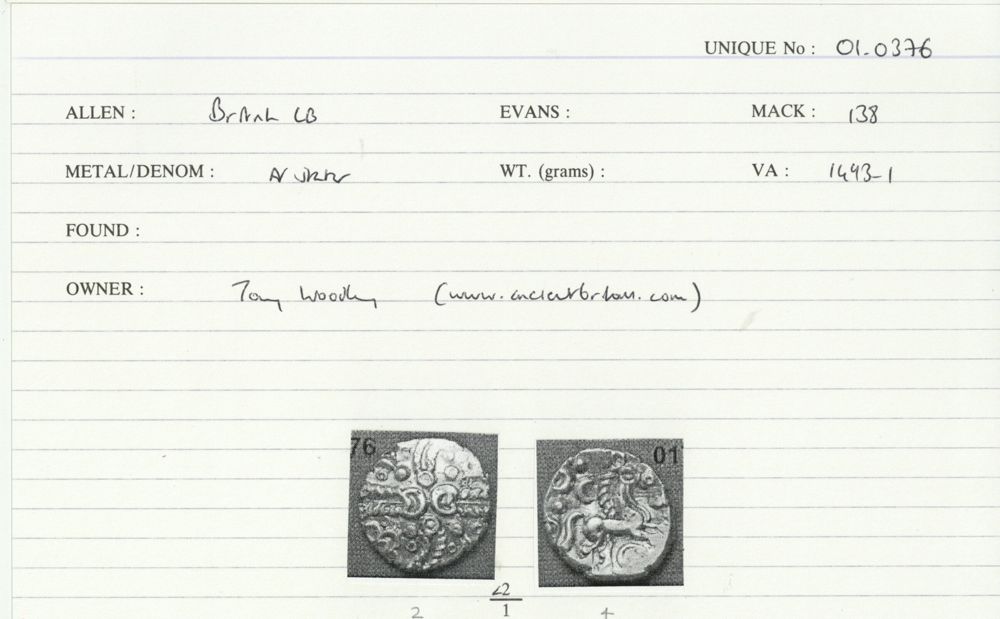 UNIQUE No : 01.0376
ALLEN : British LB EVANS : MACK : 138
METAL/DENOM : AV stater WT. (grams) : VA : 1493-1
FOUND :
OWNER : Tony Woodley (www.ancientbritons.com)
76 01
1
2 4